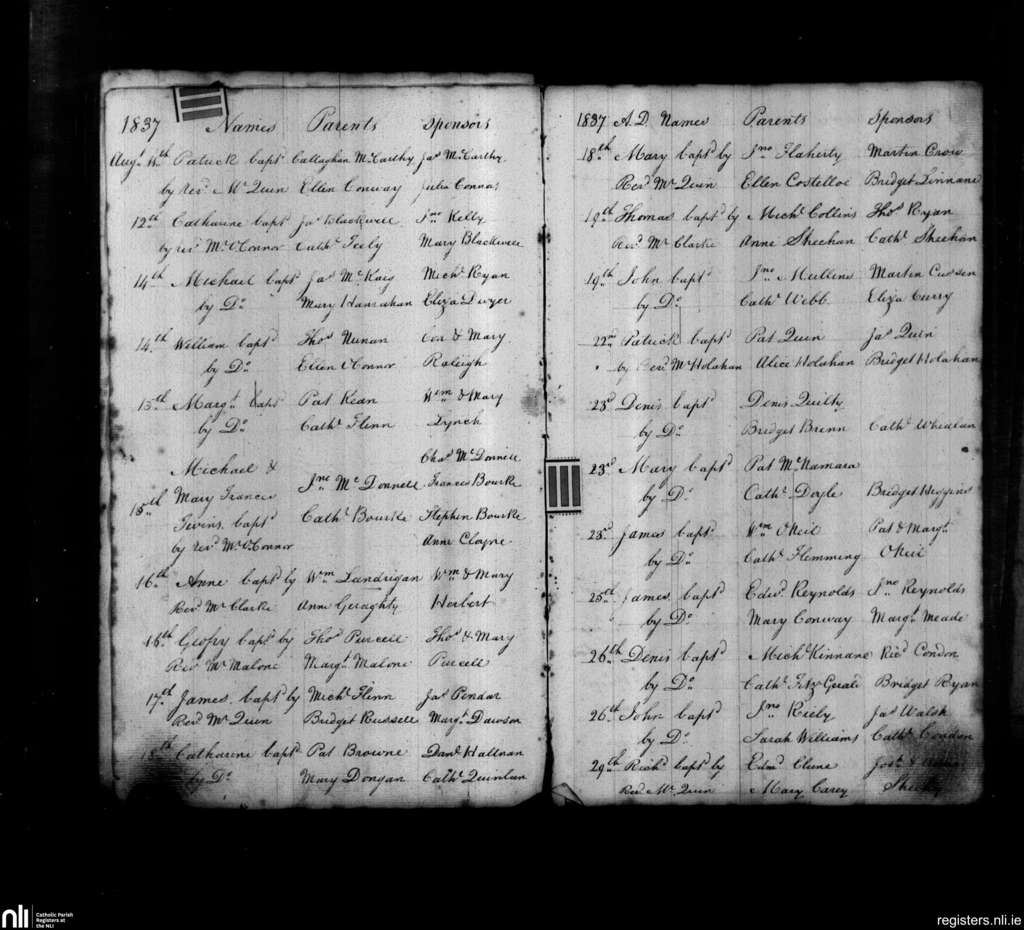 1837 Names Parents Sponsors
Augt 11th Patrick bapt Callaghan McCarthy Jas McCarthy
by Revd Mr Quin Ellen Conway Julia Connor
12th Catharine bapt Jas Blackwell Jno Kelly
by revd Mr O'Connor Cathe Feely Mary Blackwell
14th Michael bapt Jas McKais Michl Ryan
by Do Mary Hanrahan Eliza Dwyer
14th William baptd Thos Nunan Con & Mary
by Do Ellen O'Connor Raleigh
15th Margt bapt Pat Kean Wm & Mary
by Do Cathe Flinn Lynch
Chas McDonnell
Michael &
15th Mary Frances Jno McDonnell Frances Bourke
Twins baptd Cathe Bourke Stephen Bourke
by Revd Mr O'Connor Anne Clayne
16th Anne baptd by Wm Landrigan Wm & Mary
Revd Mr Clarke Anne Geraghty Herbert
16th baptd by Thos Purcell Thos & Mary
Revd Mr Malone Margt Malone Purcell
17th James baptd by Michl Flinn Jas Pendar
Revd Mr Quin Bridget Russell Margt Dawson
18th Catharine bapt Pat Browne Danl Hallnan
by Do Mary Dongan Cathe Quinlan
1837 A.D. Names Parents Sponsors
18th Mary baptd by Jno Flaherty Martin Crow
Revd Mr Quin Ellen Costelloe Bridget Linnane
19th Thomas baptd by Michl Collins Thos Ryan
Revd Mr Clarke Anne Sheehan Cathe Sheehan
19th John bapt Jno Mullins Martin Cussen
by Do Cathe Webb Eliza Curry
22nd Patrick baptd Pat Quin Jas Quin
by Revd Mr Holahan Alice Holahan Bridget Holahan
23d Denis baptd Denis Quilty
by Do Bridget Brinn Cathe Whealan
23d Mary baptd Pat McNamara
by Do Cathe Doyle Bridget Higgins
23d James baptd Wm O'Keil Pat & Margt
by Do Cathe Flemming O'Keil
25th James baptd Edwd Reynolds Jno Reynolds
by Do Mary Conway Margt Meade
26th Denis baptd Michl Kinnane Ricd Condon
by Do Cathe FitzGerald Bridget Ryan
26th John baptd Jno Rieby Jas Walsh
by Do Sarah Williams Cathe Condon
29th Richd baptd by Edmd Clune Josh &
Revd Mr Quin Mary Carey Sheehy
nli Catholic Parish
Registers at
the NLI
registers.nli.ie